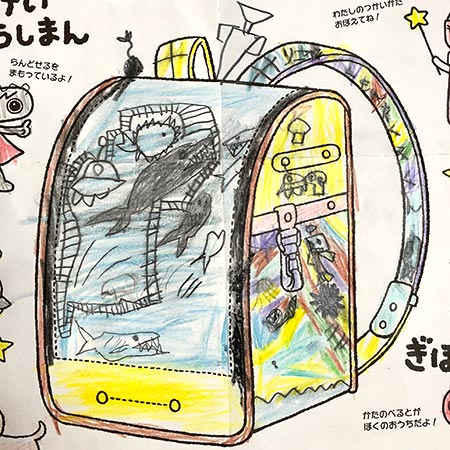 けい
らしまん
らんどせるを
まもっているよ!
わたしのつかいかた
おぼえてね!
ぎほ
かたのべるとが
ぼくのおうちだよ!